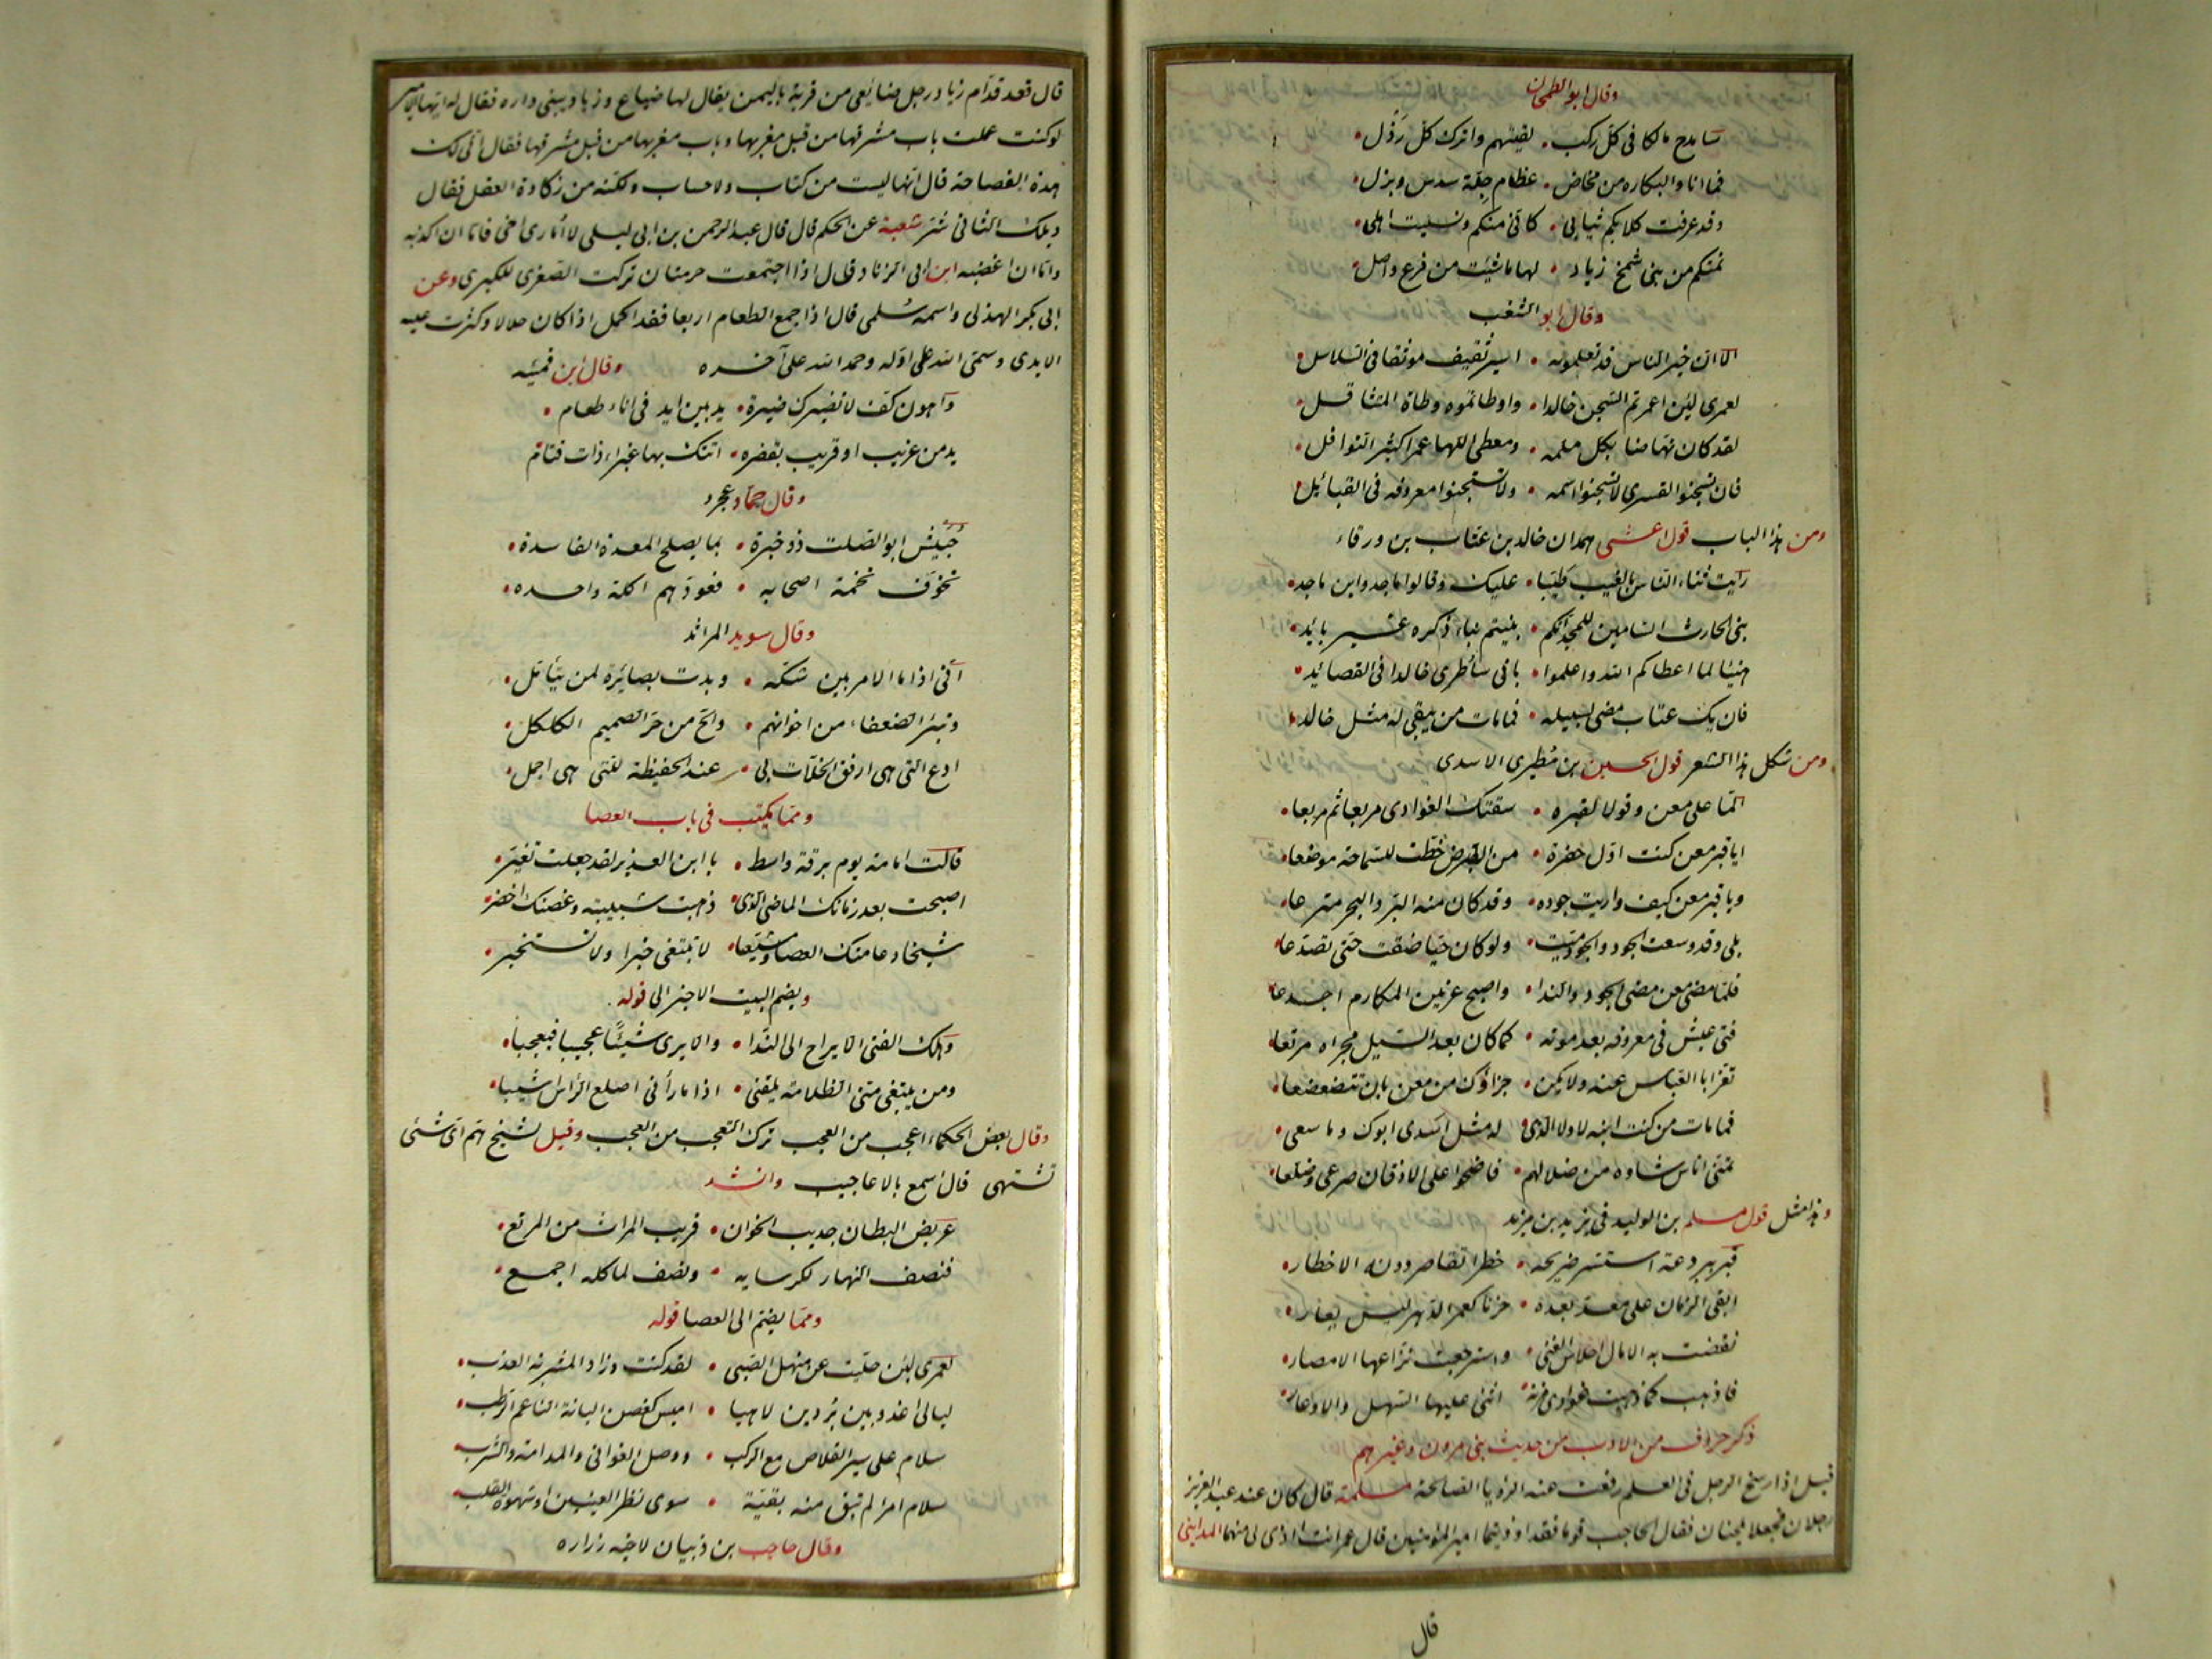 وقال ابو الطمحان
سامدح مالكا في كل ركب • لقيتهم واترك كل رذل •
فما انا والبكاره من مخاض • عظام جلة سدس وبزل •
وقد عرفت كلابكم ثيابي • كاني منكم ونسيت اهلي •
نمتكم من بني شمخ زياد • لها ما شئت من فرع واصل •
وقال ابو الشغب
الا ان خير الناس قد تعلمونه • اسير ثقيف موثقا في السلاسل •
لعمري لئن اعمرتم السجن خالدا • واوطاتموه وطاة المتثاقل •
لقد كان نهاضا بكل ملمه • ومعطي اللها عمرا كثير النوافل •
فان تسجنوا القسري لا تسجنوا اسمه • ولا تسجنوا معروفه في القبائل •
ومن هذا الباب قول اعشى همدان خالد بن عتاب بن ورقاء
رايت ثناء الناس بالغيب طيبا • عليك وقالوا ماجد وابن ماجد •
بني الحارث السامين للمجد انكم • بنيتم بناء ذكره غير بائد •
هنيئا لما اعطاكم الله واعلموا • باني ساطري خالدا في القصائد •
فان يك عتاب مضى لسبيله • فما مات من يبقى له مثل خالد •
ومن شكل هذا الشعر قول الحسين بن مطير الاسدي
الما على معن وقولا لقبره • سقتك الغوادي مربعا ثم مربعا •
ايا قبر معن كنت اول حفرة • من الارض خطت للسماحة موضعا •
ويا قبر معن كيف واريت جوده • وقد كان منه البر والبحر مترعا •
بلى وقد وسعت الجود والجود ميت • ولو كان حيا ضقت حتى تصدعا •
فلما مضى معن مضى الجود والندا • واصبح عرنين المكارم اجدعا
فتى عيش في معروفه بعد موته • كما كان بعد السيل مجراه مرتعا •
تعز ابا العباس عنه ولا يكن • جزاؤك من معن بان تتضعضعا •
فما مات من كنت ابنه لا ولا الذي • له مثل اسدى ابوك وما سعى •
تمنى اناس شاوه من ضلالهم • فاضحوا على الاذقان صرعى وضلعا •
وهذا مثل قول مسلم بن الوليد في يزيد بن مزيد
قبر ببردعة استسر ضريحه • خطرا تقاصر دونه الاخطار •
ابقى الزمان على معد بعده • حزنا كعمر الدهر ليس يعار •
نفضت به الامال احلاس الغنى • واسترجعت نزاعها الامصار •
فاذهب كما ذهبت غوادي مزنة • اثنى عليها السهل والاوعار •
ذكر حروف من الادب من حديث بني مروان وغيرهم
قيل اذا رسخ الرجل في العلم رفعت عنه الرؤيا الصالحة مسلمة قال كان عند عبد العزيز
رجلان فجعلا يلحنان فقال الحاجب قوما فقد اوذيتما امير المؤمنين قال عمر انت اذى لي منهما المدايني
قال
قال قعد قدام زياد رجل ضايعي من قرية باليمن يقال لها ضياع وزياد يبني داره فقال له ايها الامير
لو كنت عملت باب مشرقها من قبل مغربها وباب مغربها من قبل مشرقها فقال انى لك
هذه الفصاحة قال انها ليست من كتاب ولا حساب ولكنه من زكاوة العقل فقال
ويلك الثاني شر شعبة عن الحكم قال قال عبد الرحمن بن ابي ليلى لا اماري اخي فاما ان اكذبه
واما ان اغضبه ابن ابي الزناد قال اذا اجتمعت حرمتان تركت الصغرى للكبرى وعن
ابي بكر الهذلي واسمه سلمى قال اذا جمع الطعام اربعا فقد اكمل اذا كان حلالا وكثرت عليه
الايدي وسمى الله على اوله وحمد الله على آخره وقال ابن قميئه
واهون كف لا تضيرك ضيرة • يد بين ايد في اناء طعام •
يد من غريب او قريب بقفره • اتتك بها غبراء ذات قتام
وقال حماد عجرد
حبيش ابو الصلت ذو خبرة • بما يصلح المعدة الفاسدة •
تخوف تخمة اصحابه • فعودهم اكلة واحده •
وقال سويد المراثد
اني اذا ما الامر بين شكه • وبدت بصائره لمن يتأمل •
وتبرأ الضعفاء من اخوانهم • والح من حر الصميم الكلكل •
ادع التي هي ارفق الخلات بي • عند الحفيظة للتي هي اجمل •
ومما يكتب في باب العصا
قالت امامة يوم برقة واسط • يا ابن العذير لقد جعلت تغير •
اصبحت بعد زمانك الماضي الذي • ذهبت شبيبته وغصنك اخضر •
شيخا دعامتك العصا ومشيعا • لا تبتغي خبرا ولا تستخبر •
ويضم البيت الاخير الى قوله
وهلك الفتى الا يراح الى الندا • والا يرى شيئا عجيبا فيعجبا •
ومن يبتغي مني الظلامة يلقني • اذا ما رأني اصلع الرأس اشيبا •
وقال بعض الحكماء اعجب من العجب ترك التعجب من العجب وقيل لشيخ هم اي شئ
تشتهي قال اسمع بالاعاجيب وانشد
عريض البطان جديب الخوان • قريب المراث من المرتع •
فنصف النهار لكرسايه • ونصف لماكله اجمع •
ومما يضم الى العصا قوله
لعمري لئن حليت عن منهل الصبى • لقد كنت ورادا لمشربه العذب •
ليالي اغدو بين بردين لاهيا • اميس كغصن البانة الناعم الرطب •
سلام على سير القلاص مع الركب • ووصل الغواني والمدامة والشرب •
سلام امرا لم تبق منه بقية • سوى نظر العينين او شهوة القلب •
وقال حاجب بن ذبيان لاخيه زراره